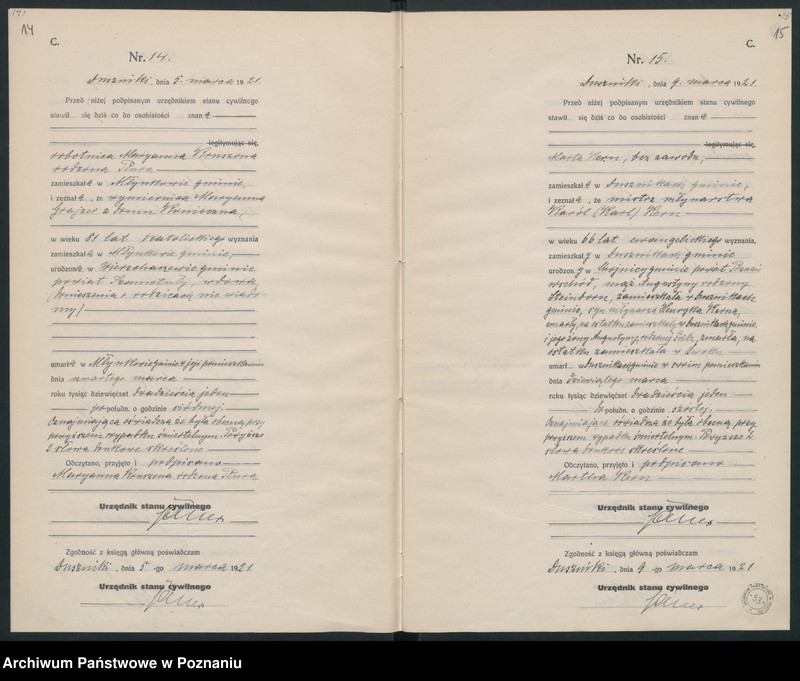 14
C.
Nr. 14.
Duszniki, dnia 5. marca 1921.
Przed niżej podpisanym urzędnikiem stanu cywilnego
stawił się dziś co do osobistości znana
legitymując się,
robotnica Maryanna
rodzona
zamieszkała w Młynkowie gminie,
i zeznała, że Maryanna
z domu
w wieku 81 lat katolickiego wyznania
zamieszkała w Młynkowie gminie,
urodzona w gminie
powiat Szamotuły, wdowa
(doniesienia o rodzicach nie wiado-
my)
umarła w Młynkowie gminie w jej pomieszkaniu
dnia czwartego marca
roku tysiąc dziewięćset dwadzieścia jeden
po połudn. o godzinie siódmej.
Oznajmiająca oświadcza że była obecną przy
powyższem wypadku śmiertelnym. Powyższe
słowa drukowe skreślone
Odczytano, przyjęto i podpisano
Maryanna rodzona
Urzędnik stanu cywilnego
Zgodność z księgą główną poświadczam
Duszniki, dnia 5-go marca 1921
Urzędnik stanu cywilnego
15
C.
Nr. 15.
Duszniki, dnia 9. marca 1921.
Przed niżej podpisanym urzędnikiem stanu cywilnego
stawił się dziś co do osobistości znana
legitymując się,
Marta Kern, bez zawodu,
zamieszkała w Dusznikach gminie,
i zeznała, że mistrz młynarstwa
Karól (Karl) Kern
w wieku 66 lat ewangelickiego wyznania,
zamieszkały w Dusznikach gminie
urodzony w gminie powiat Poznań
wschód, mąż Augustyny rodzonej
zamieszkała w Dusznikach
gminie, syn młynarza Henryka Kerna,
zmarły, na ostatku zamieszkały w Dusznikach gminie,
i jego żony Augustyny, rodzonej zmarła, na
ostatku zamieszkała w
umarł w Dusznikach gminie w swim pomieszkaniu
dnia dziewiątego marca
roku tysiąc dziewięćset dwadzieścia jeden
połudn. o godzinie szóstej.
Oznajmiająca oświadcza że była obecną przy
powyższem wypadku śmiertelnym. Powyższe 2
słowa drukowe skreślone
Odczytano, przyjęto i podpisano
Martha Kern
Urzędnik stanu cywilnego
Zgodność z księgą główną poświadczam
Duszniki, dnia 9-go marca 1921
Urzędnik stanu cywilnego
Archiwum Państwowe w Poznaniu